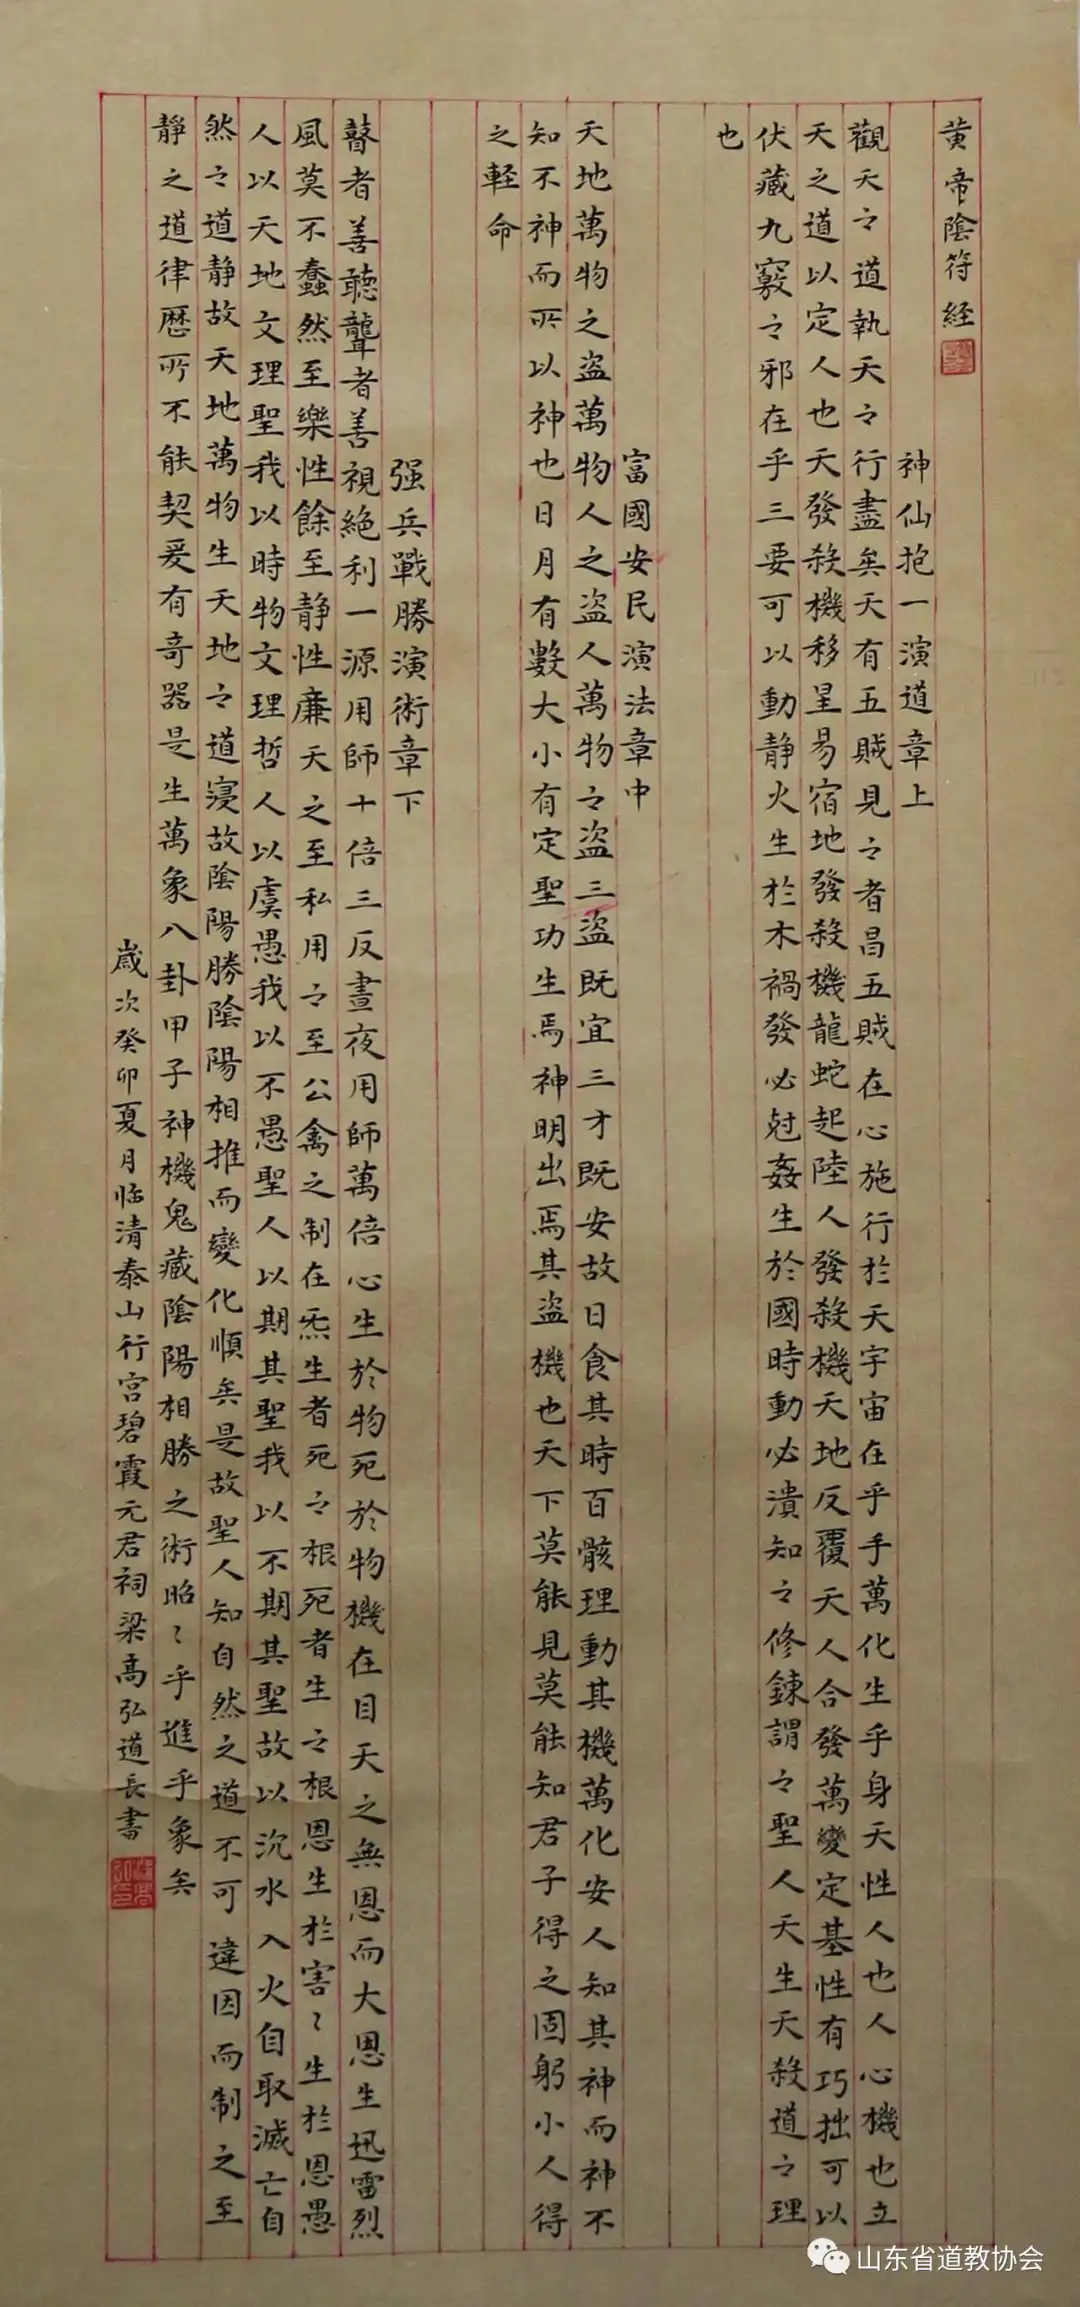 黄帝陰符経
神仙抱一演道章上
觀天之道執天之行盡矣天有五賊見之者昌五賊在心施行於天宇宙在乎手萬化生乎身天性人也人心機也立
天之道以定人也天發殺機移星易宿地發殺機龍蛇起陸人發殺機天地反覆天人合發萬變定基性有巧拙可以
伏藏九竅之邪在乎三要可以動静火生於木禍發必尅姦生於國時動必潰知之修鍊謂之聖人天生天殺道之理
也
富國安民演法章中
天地萬物之盗萬物人之盗人萬物之盗三盗既宜三才既安故日食其時百骸理動其機萬化安人知其神而神不
知不神而所以神也日月有數大小有定聖功生焉神明出焉其盗機也天下莫能見莫能知君子得之固躬小人得
之軽命
强兵戰勝演術章下
瞽者善聼聾者善視絶利一源用師十倍三反晝夜用師萬倍心生於物死於物機在目天之無恩而大恩生迅雷烈
風莫不蠢然至樂性餘至静性廉天之至私用之至公禽之制在炁生者死之根死者生之根恩生於害〻生於恩愚
人以天地文理聖我以時物文理哲人以虞愚我以不愚聖人以期其聖我以不期其聖故以沉水入火自取滅亡自
然之道静故天地萬物生天地之道寖故陰陽勝陰陽相推而變化順矣是故聖人知自然之道不可違因而制之至
静之道律歷所不能契爰有奇器是生萬象八卦甲子神機鬼藏陰陽相勝之術昭〻乎進乎象矣
歲次癸卯夏月临清泰山行宫碧霞元君祠梁高弘道長書
山东省道教协会